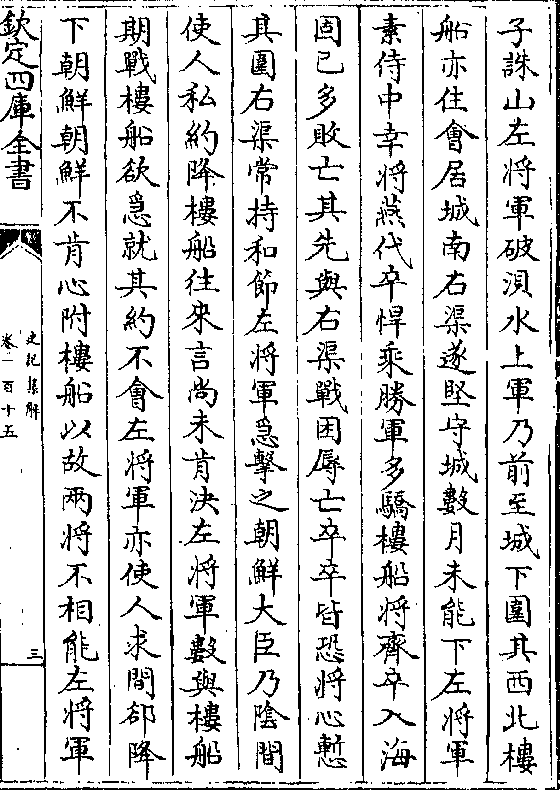 子誅山左將軍破浿水上軍乃前至城下圍其西北樓
船亦住會居城南右渠遂堅守城數月未能下左將軍
素侍中幸將燕代卒悍乘勝軍多驕樓船將齊卒入海
固已多敗亡其先與右渠戰困辱亡卒卒皆恐將心慙
其圍右渠常持和節左將軍急擊之朝鮮大臣乃陰間
使人私約降樓船往來言尚未肯決左將軍數與樓船
期戰樓船欲急就其約不會左將軍亦使人求間郤降
下朝鮮朝鮮不肯心附樓船以故兩將不相能左將軍
欽定四庫全書
史記集解
卷一百十五
三